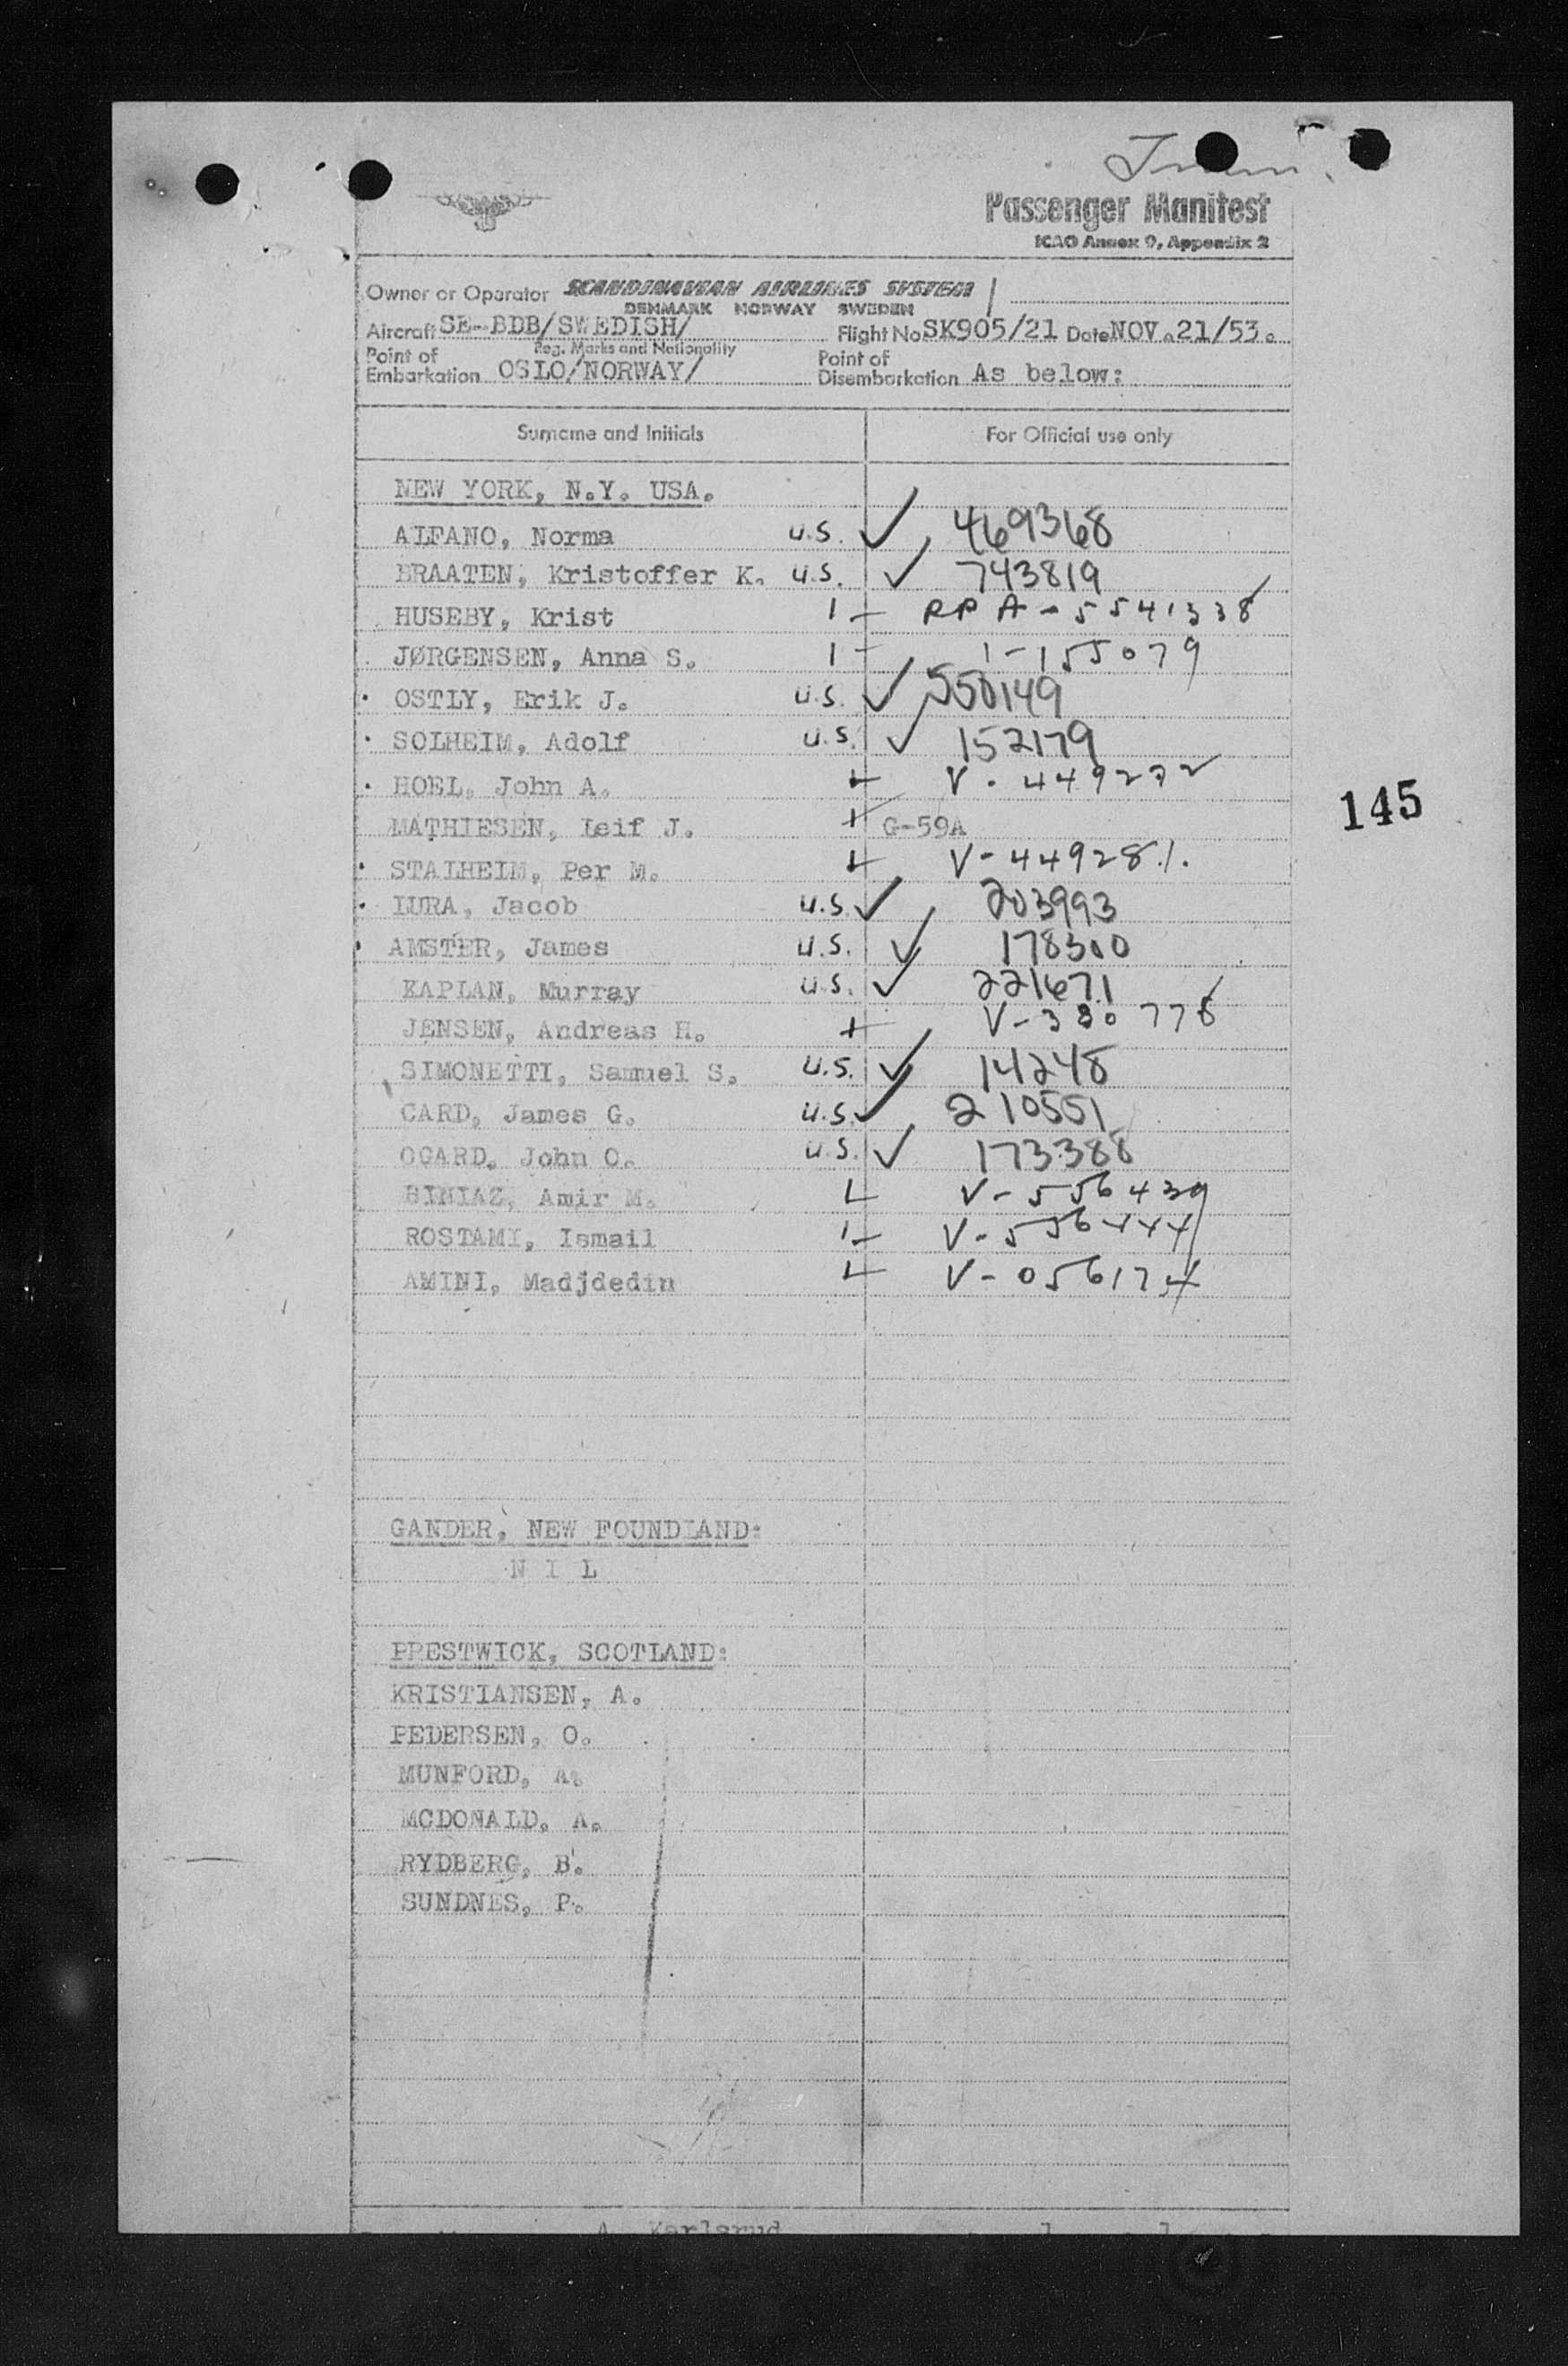 Passenger Manifest
ICAO Annex 9, Appendix 2
Owner or Operator SCANDINAVIAN AIRLINES SYSTEM
DENMARK NORWAY SWEDEN
Aircraft SE-BDB/SWEDISH/ Flight No SK905/21 Date NOV.21/53.
Reg. Marks and Nationality
Point of Embarkation OSLO/NORWAY/ Point of Disembarkation As below:
Surname and Initials For Official use only
NEW YORK, N.Y. USA.
ALFANO, Norma U.S. ✓ 469368
BRAATEN, Kristoffer K. U.S. ✓ 743819
HUSEBY, Krist 1 - RPA-5541338
JØRGENSEN, Anna S. 1 - 1-155079
OSTLY, Erik J. U.S. ✓ 550149
SOLHEIM, Adolf U.S. ✓ 152179
HOEL, John A. V-449272
MATHIESEN, Leif J. G-59A
STALHEIM, Per M. V-449281.
LURA, Jacob U.S. ✓ 203993
145
AMSTER, James U.S. ✓ 178300
KAPLAN, Murray U.S. ✓ 221671
JENSEN, Andreas H. V-380778
SIMONETTI, Samuel S. U.S. ✓ 14248
CARD, James G. U.S. ✓ 210551
OGARD, John O. U.S. ✓ 173388
BINIAZ, Amir M. V-556439
ROSTAMI, Ismail V-556444
AMINI, Madjdedin V-056174
GANDER, NEW FOUNDLAND:
N I L
PRESTWICK, SCOTLAND:
KRISTIANSEN, A.
PEDERSEN, O.
MUNFORD, A.
MCDONALD, A.
RYDBERG, B.
SUNDNES, P.
A. Karlsrud